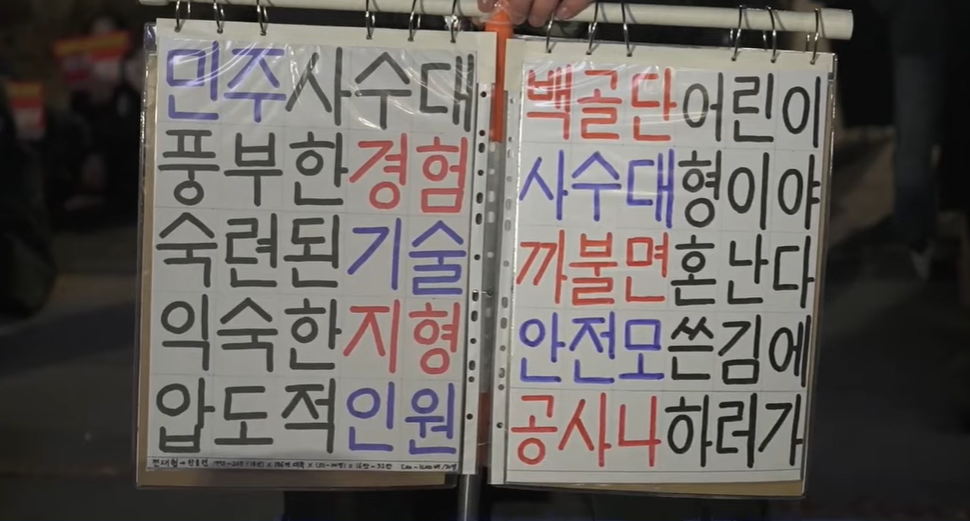 민주사수대
풍부한경험
숙련된기술
익숙한지형
압도적인원
백골단어린이
사수대형이야
까불면혼난다
안전모쓴김에
공사나하러가